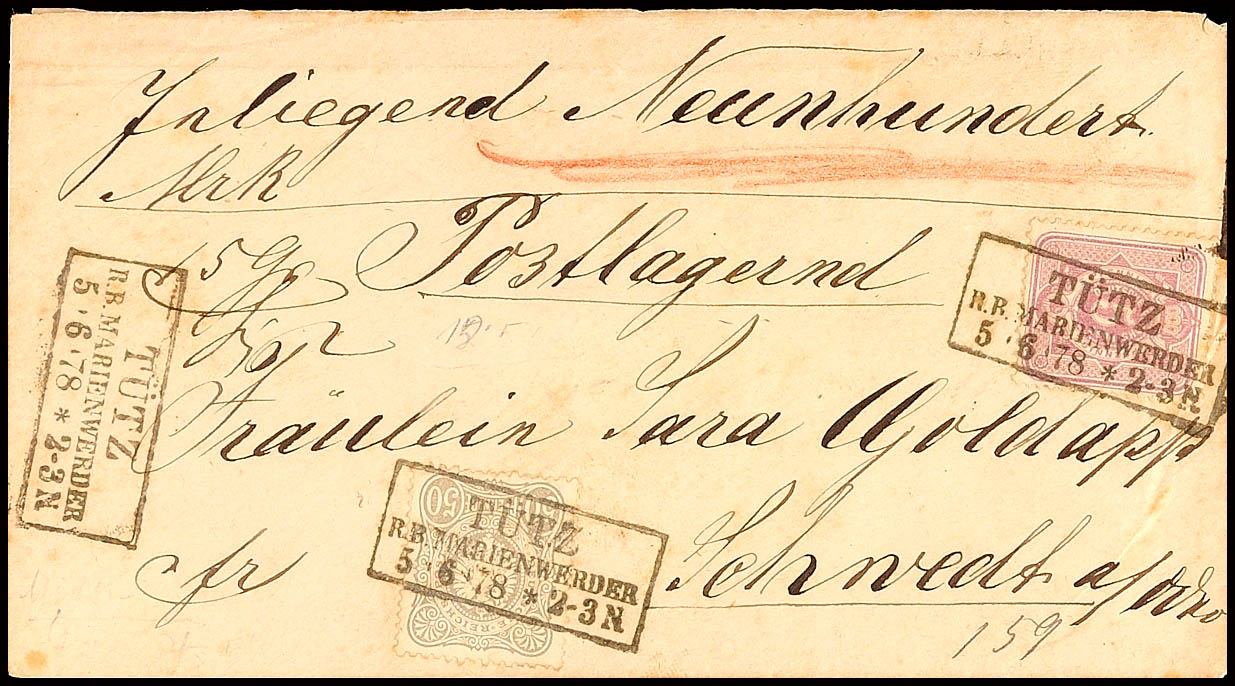 Inliegend Neunhundert
Mrk
15 Gr Postlagernd
Fräulein Sara Goldapp
fr Schwedt a/Oder
159
TÜTZ
R.B. MARIENWERDER
5 6 78 * 2-3 N
TÜTZ
R.B. MARIENWERDER
5 6 78 * 2-3 N
50
TÜTZ
R.B. MARIENWERDER
5 6 78 * 2-3 N